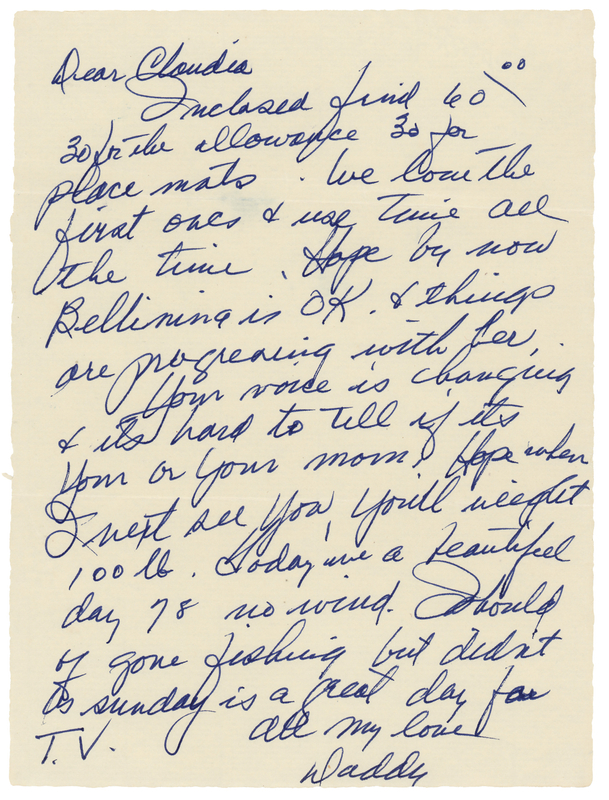 Dear Claudia
Inclosed find 60\00
30 for the allowance 30 for
place mats. We love the
first ones & use time all
the time. Hope by now
Bellinina is OK. & things
are progreaing with her.
Your voice is changing
& its hard to tell if its
Your or Your mom. Hope when
I next see You, You'll weight
100 lb. Today was a beautiful
day 78 no wind. Should
of gone fishing but didn't
as sunday is a great day for
T.V. all my love
Daddy